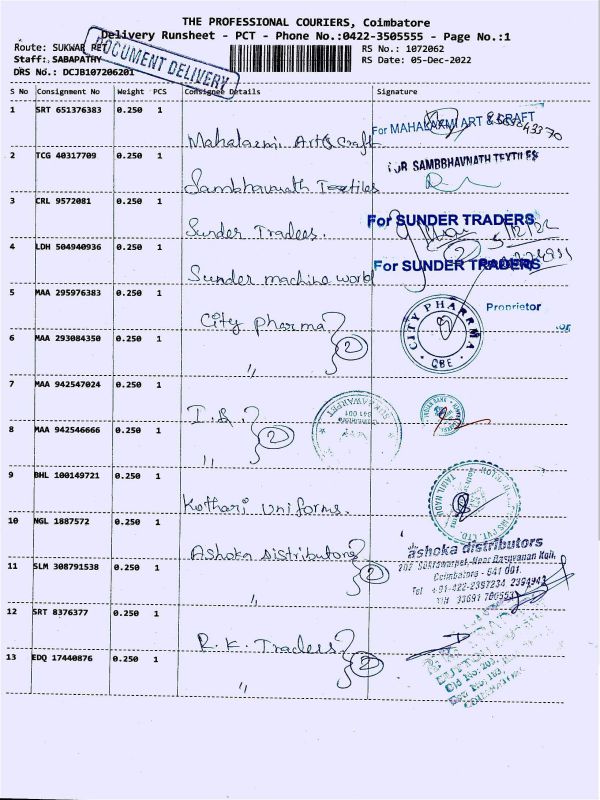 THE PROFESSIONAL COURIERS, Coimbatore
Delivery Runsheet - PCT - Phone No.:0422-3505555 - Page No.:1
Route: SUKWAR PET
RS No.: 1072062
Staff: SABAPATHY
RS Date: 05-Dec-2022
DRS No.: DCJB107206201
DOCUMENT DELIVERY
S No Consignment No Weight PCS Consignee Details Signature
1 SRT 651376383 0.250 1
Mahalaxmi Art & Craft
For MAHALAXMI ART & CRAFT
2 TCG 40317709 0.250 1
Sambhavnath Textiles
FOR SAMBBHAVNATH TEXTILES
3 CRL 9572081 0.250 1
Sunder Traders.
For SUNDER TRADERS
5/12/22
4 LDH 504940936 0.250 1
Sunder machine world
For SUNDER TRADERS
Proprietor
5 MAA 295976383 0.250 1
City pharma
2
CITY PHARRMA
CBE
6 MAA 293084350 0.250 1
"
7 MAA 942547024 0.250 1
I.B.
2
SUKRAWARPET
641 001
INDIAN BANK
8 MAA 942546666 0.250 1
"
9 BHL 100149721 0.250 1
Kothari Uniforms.
TAMIL NADU
10 NGL 1887572 0.250 1
Ashoka Distributors
2
ashoka distributors
Coimbatore - 641 001.
Tel : 91-422-2397234 2394943
11 SLM 308791538 0.250 1
"
12 SRT 8376377 0.250 1
R.K. Traders
2
13 EDQ 17440876 0.250 1
"